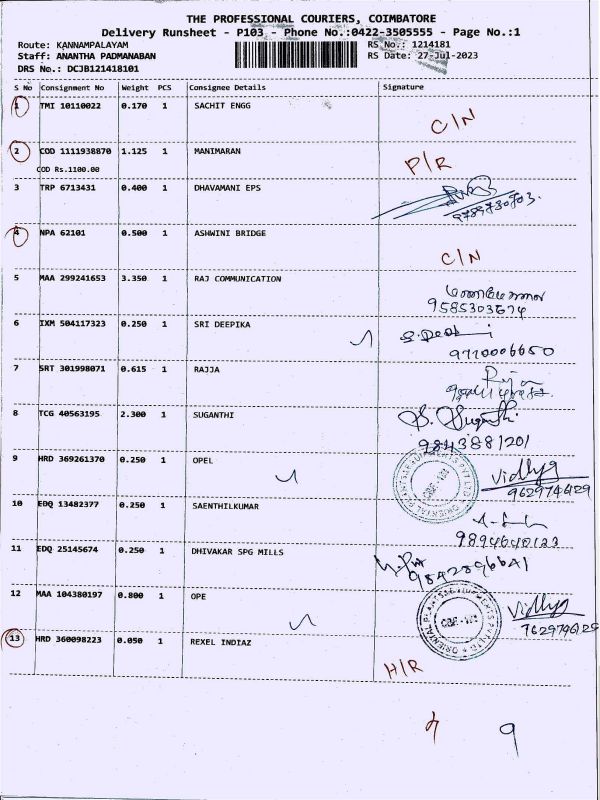 THE PROFESSIONAL COURIERS, COIMBATORE
Delivery Runsheet - P103 - Phone No.:0422-3505555 - Page No.:1
Route: KANNAMPALAYAM RS No.: 1214181
Staff: ANANTHA PADMANABAN RS Date: 27-Jul-2023
DRS No.: DCJB121418101
S No Consignment No Weight PCS Consignee Details Signature
1 TMI 10110022 0.170 1 SACHIT ENGG
C/N
2 COD 1111938870 1.125 1 MANIMARAN
COD Rs.1100.00 P/R
3 TRP 6713431 0.400 1 DHAVAMANI EPS
4 NPA 62101 0.500 1 ASHWINI BRIDGE
C/N
5 MAA 299241653 3.350 1 RAJ COMMUNICATION
9585303674
6 IXM 504117323 0.250 1 SRI DEEPIKA
9710006650
7 SRT 301998071 0.615 1 RAJJA
Raja
8 TCG 40563195 2.300 1 SUGANTHI
S. Suganthi
9843881201
9 HRD 369261370 0.250 1 OPEL
Vidhya
9629746129
10 EDQ 13482377 0.250 1 SAENTHILKUMAR
9894640123
11 EDQ 25145674 0.250 1 DHIVAKAR SPG MILLS
9842896641
12 MAA 104380197 0.800 1 OPE
ORIENTAL PLANTS & EQUIPMENTS PVT LTD
CBE-
Vidhya
13 HRD 360098223 0.050 1 REXEL INDIAZ
H/R
9